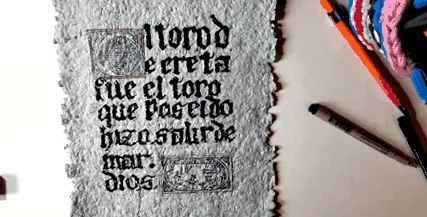 l toro d
e creta
fue el toro
que Poseido
hizo salir de
mar.
dios